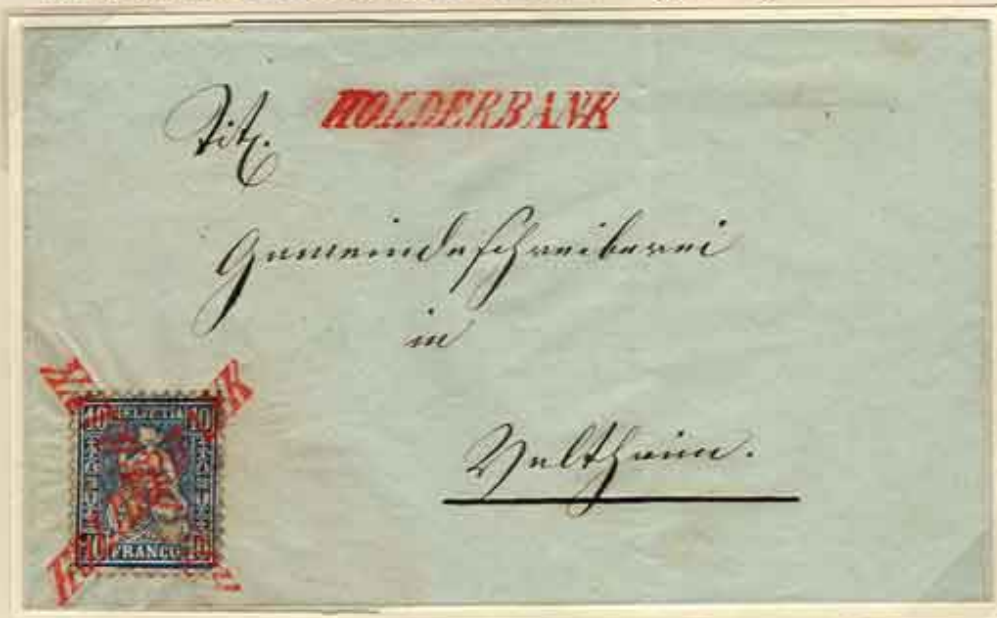 HOLDERBANK
Tit.
Gemeindeschreiberei
in
Veltheim.
10 HELVETIA 10
10 FRANCO 10